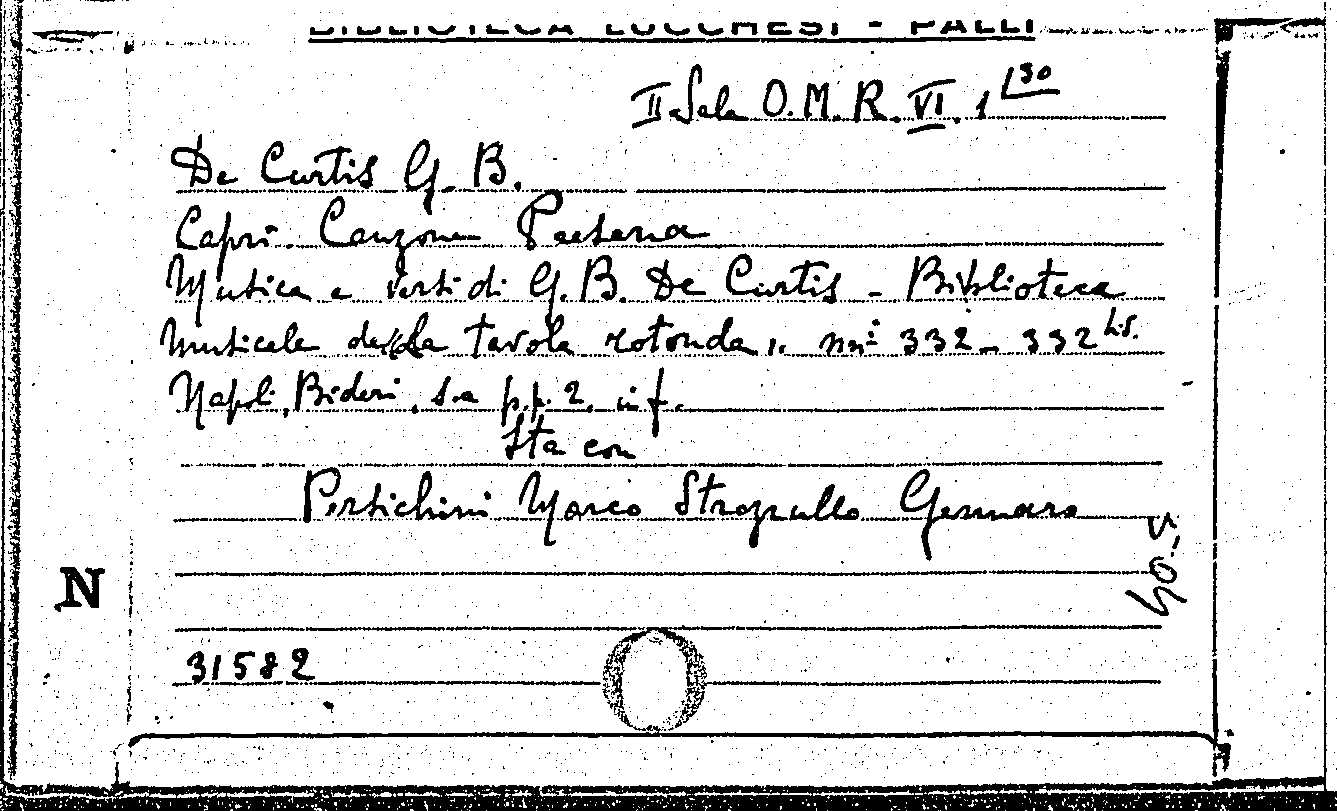 BIBLIOTECA LUCCHESI - PALLI
II Sala O.M.R. VI. 1 130
De Curtis G. B.
Capri. Canzone Paesana
Musica e versi di G. B. De Curtis - Biblioteca
musicale della tavola rotonda, nni 332 - 332 bis.
Napoli, Bideri, s.a pp. 2. inf.
Sta con
Persichini Marco Stropullo Gennaro
N
31582